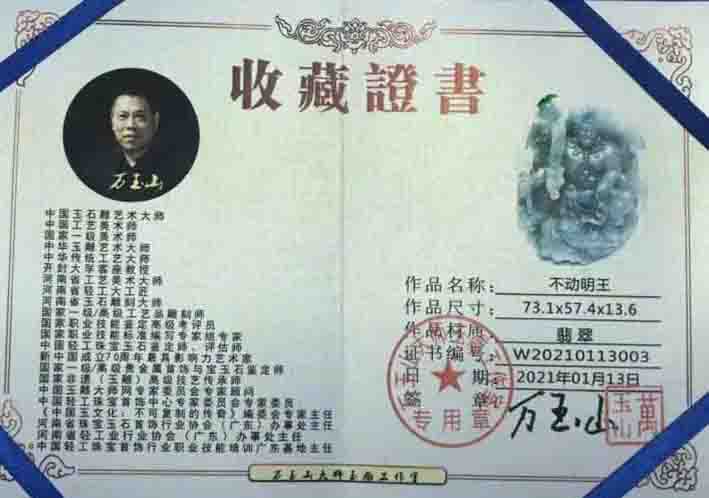 收藏證書
万玉山
中国玉石雕艺术大师
中国工艺美术师
国家一级美术师
中华玉雕艺术大师
中华传统工艺大师
开封大学客座教授
河南省工艺美术大师
河南省轻工大工匠
河南省玉石雕刻大师
国家一级/高级工艺品雕刻师
国家职业技能鉴定高级考评员
国家职业技能标准编写专家组专家
中国轻工珠宝玉石鉴定师、评估师
新中国成立70周年最具影响力艺术家
国家一级/高级贵金属首饰与宝玉石鉴定师
国家非遗（玉雕）高级技艺传承师
中国玉雕大师网专家委员会专家顾问
中国轻工珠宝首饰中心专家委员会专家委员
《中国玉文化：不可复制的传奇》编委会专家主任
河南省珠宝玉石首饰行业协会（广东）办事处主任
河南省轻工业行业协会（广东）办事处主任
中国轻工珠宝首饰行业职业技能培训广东基地主任
作品名称：不动明王
作品尺寸：73.1x57.4x13.6
作品材质：翡翠
证书编号：W20210113003
日期：2021年01月13日
签章：万玉山
萬玉山
专用章
万玉山大师玉雕工作室